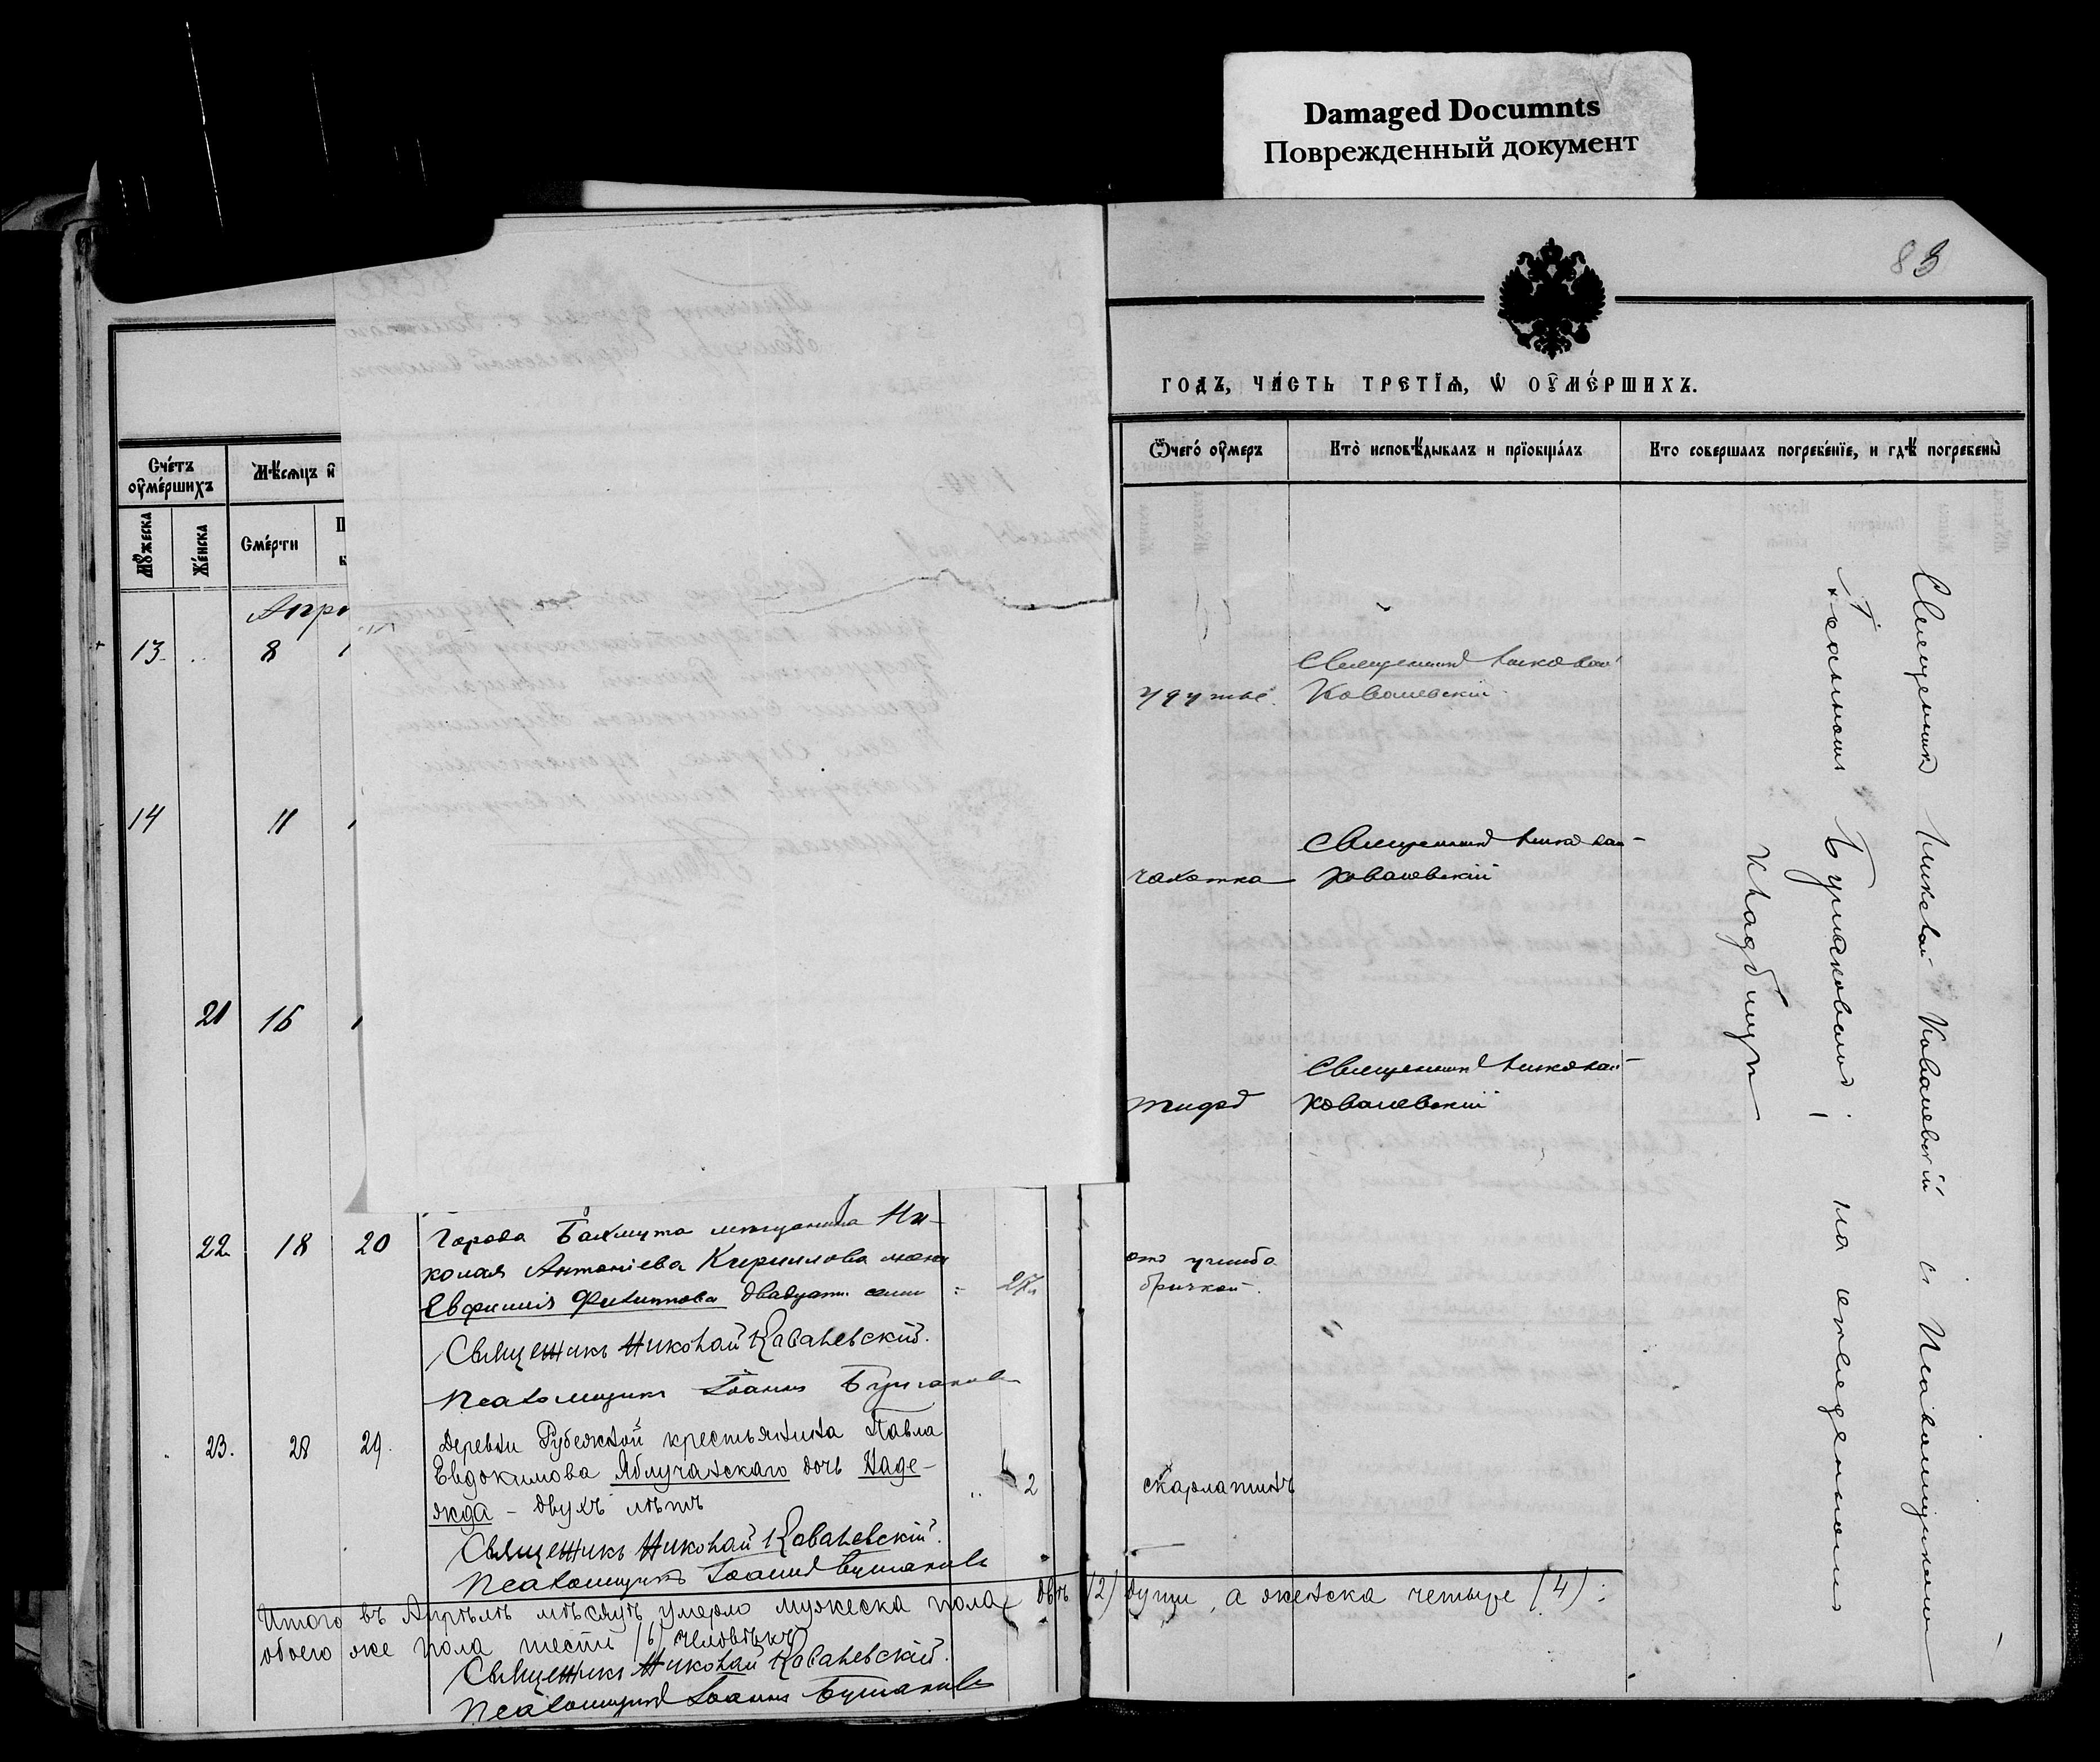 Damaged Documnts
Поврежденный документ
83
Счетъ
оумершихъ
Мѣсяцъ и
Мужеска
Женска
Смерти
Апрѣ
13.
8
14
11
21
16
22
18
20
Города Бахмута мѣщанина Ни-
колая Антоніева Кириллова жена
Евфимія Филиппова двадцати семи
27
Священникъ Николай Ковалевскій.
Псаломщикъ Іоаннъ Бушаковъ
23.
28
29.
Деревни Рубежной крестьянина Павла
Евдокимова Яблучанскаго дочь Наде-
жда - двухъ лѣтъ
2
Священникъ Николай Ковалевскій.
Псаломщикъ Іоаннъ Бушаковъ
Итого въ Апрѣлѣ мѣсяцѣ умерло мужеска пола двѣ (2) души, а женска четыре (4):
обоего же пола шесть (6) человѣкъ
Священникъ Николай Ковалевскій.
Псаломщикъ Іоаннъ Бушаковъ
годъ, часть третїѧ, ѡ оумершихъ.
Ѿчего оумеръ
Кто исповѣдывалъ и прїобщалъ
Кто совершалъ погребенїе, и гдѣ погребены
удушье.
Священникъ Николай
Ковалевскій.
чахотка
Священникъ Николай
Ковалевскій
тифъ
Священникъ Николай
Ковалевскій
отъ ушиба
бричкой.
скарлатинъ
Священникъ Николай Ковалевскій съ Псаломщикомъ
Іоанномъ Бушаковымъ; на отведенномъ
кладбищѣ